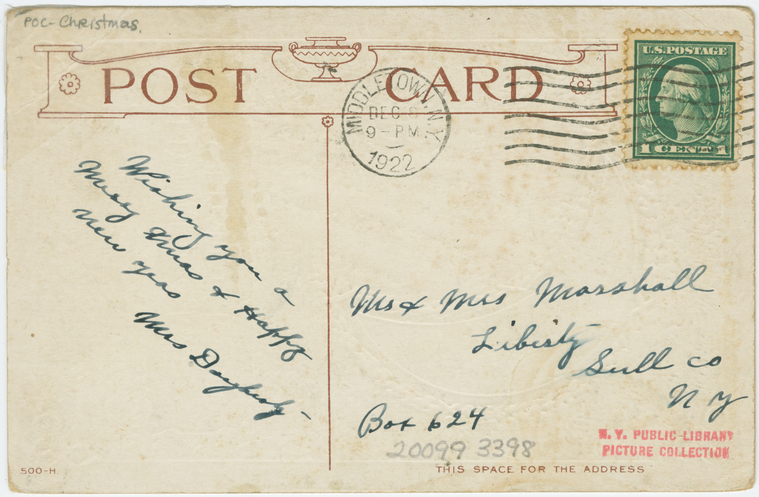 POC-Christmas.
POST CARD
U.S. POSTAGE
1 CENT 1
MIDDLETOWN, N.Y.
DEC
9-PM
1922
Wishing you a
Merry Xmas & Happy
New Year
Mrs
Mr & Mrs Marshall
Liberty
Sull co
N Y
Box 624
20099 3398
N. Y. PUBLIC LIBRARY
PICTURE COLLECTION
500-H.
THIS SPACE FOR THE ADDRESS